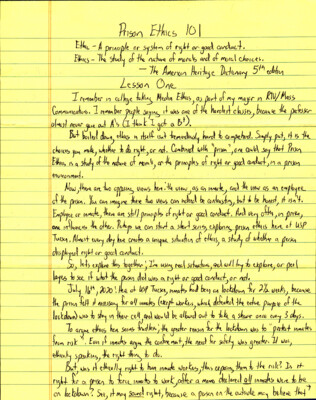 Prison Ethics 101
Ethic - A principle or system of right or good conduct.
Ethics - The study of the nature of morals and of moral choices.
- The American Heritage Dictionary 5th edition
Lesson One
I remember in college taking Media Ethics, as part of my major in RTV/Mass
Communications. I remember people saying, it was one of the hardest classes, because the professor
almost never gave out A's (I think I got a B!).
But boiled down, ethics is itself not tremendously hard to comprehend. Simply put, it is the
choices you make, whether to do right, or not. Combined with "prison", one could say that Prison
Ethics is a study of the nature of morals, or the principles of right or good conduct, in a prison
environment.
Now there are two opposing views here: the view as an inmate, and the view as an employee
of the prison. You can imagine these two views can indeed be contrasting, but to be honest, it isn't.
Employee or inmate, there are still principles of right or good conduct. And very often, in prison,
one influences the other. Perhaps we can start a short series, exploring prison ethics here at USP
Tucson. Almost every day here creates a unique situation of ethics, a study of whether a person
displayed right or good conduct.
So, let's explore this together; I'm using real situations, and will try to explore, or peel
layers to see if what the prison did was a right or good conduct, or not.
July 16th, 2020! Here at USP Tucson, inmates had been on lockdown for 2½ weeks, because
the prison felt it necessary for all inmates (except workers, which defeated the entire purpose of the
lockdown) was to stay in their cell, and would be allowed out to take a shower once every 3 days.
To argue ethics here seems troublesome; the greater reason for the lockdown was to "protect inmates
from risk". Even if inmates argue the confinement, the need for safety was greater. It was,
ethically speaking, the right thing to do.
But, was it ethically right to have inmate workers, thus exposing them to the risk? Is it
right for a prison to force inmates to work, after a memo declared all inmates were to be
on lockdown? See, it may sound right, because a person on the outside may believe that